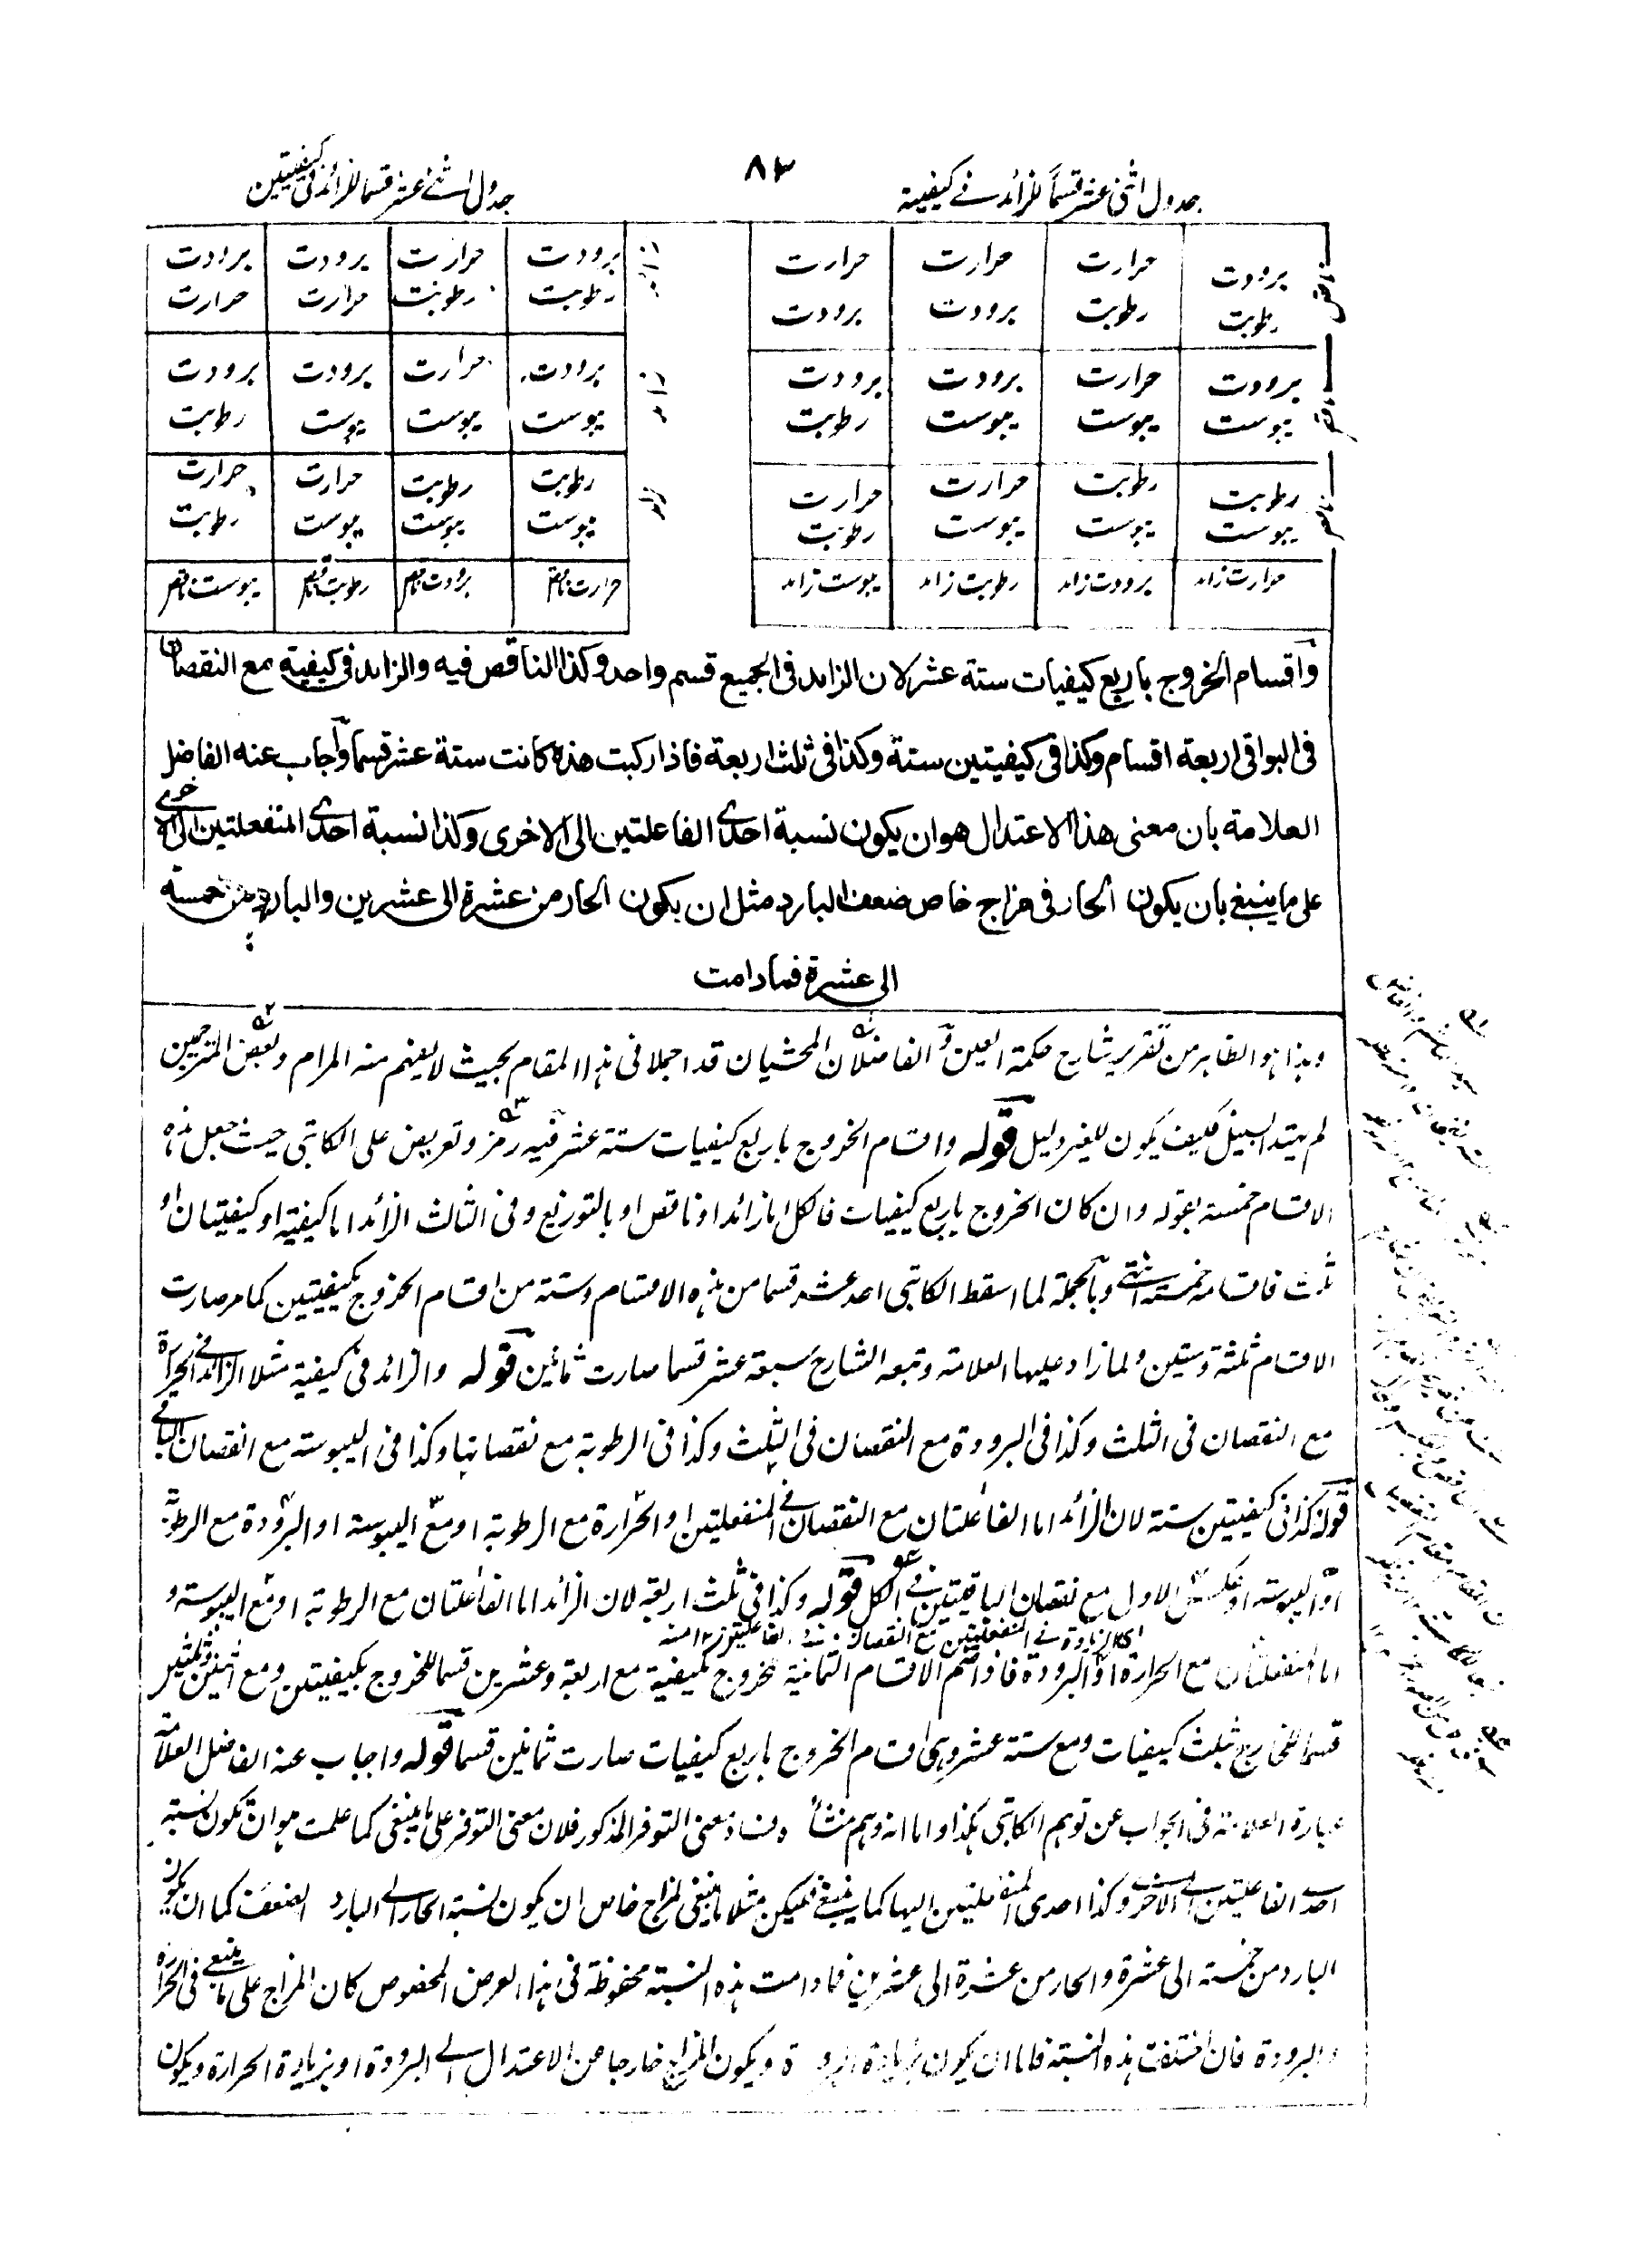 ۸۳
جدول اثنی عشر قسماً للزائد فے کیفیة
ناقص
برودت حرارت حرارت حرارت
رطوبت رطوبت برودت برودت
ناقص
برودت حرارت برودت برودت
یبوست یبوست یبوست رطوبت
ناقص
رطوبت رطوبت حرارت حرارت
یبوست یبوست یبوست رطوبت
حرارت زائد برودت زائد رطوبت زائد یبوست زائد
جدول اثنے عشر قسما للزائد فی کیفیتین
زائد
برودت حرارت برودت برودت
رطوبت رطوبت حرارت حرارت
زائد
برودت حرارت برودت برودت
یبوست یبوست یبوست رطوبت
زائد
رطوبت رطوبت حرارت حرارت
یبوست یبوست یبوست رطوبت
حرارت ناقص برودت ناقص رطوبت ناقص یبوست ناقص
واقسام الخروج باربع کیفیات ستة عشر لان الزائد فی الجمیع قسم واحد وکذا الناقص فیه والزائد فی کیفیة مع النقصان
فی البواقی اربعة اقسام وکذا فی کیفیتین ستة وکذا فی ثلث اربعة فاذا رکبت هذه کانت ستة عشر قسما وأجاب عنه الفاضل
العلامة بان معنی هذا الاعتدال هو ان یکون نسبة احدی الفاعلتین الی الاخری وکذا نسبة احدی المنفعلتین الی الاخری
علی ما ینبغی بان یکون الحار فی مزاج خاص ضعف البارد مثل ان یکون الحار من عشرة الی عشرین والبارد من خمسة
الی عشرة فما دامت
وہذا ہو الظاہر من تقریر شارح حکمة العین والفاضلان المحشیان قد اجملا فی ہذا المقام بحیث لا یفہم منه المرام وبعض المترجمین
لم یہتد السبیل فکیف یکون للغیر دلیل قوله واقسام الخروج باربع کیفیات ستة عشر فیه رمز وتعریض علی الکاتبی حیث جعل ہذہ
الاقسام خمسة بقوله وان کان الخروج باربع کیفیات فالکل اما زائد او ناقص او بالتوزیع وفی الثالث الزائد اما کیفیة او کیفیتان او
ثلث فاقسامه خمسة انتہے وبالجملة لما اسقط الکاتبی احد عشر قسما من ہذہ الاقسام وستة من اقسام الخروج بکیفیتین کما مر صارت
الاقسام ثلثة وستین ولما زاد علیہا العلامة وتبعه الشارح سبعة عشر قسما صارت ثمانین قوله والزائد فی کیفیة مثلا الزائد فی الحرارة
مع النقصان فی الثلث وکذا فی البرودة مع النقصان فی الثلث وکذا فی الرطوبة مع نقصانہا وکذا فی الیبوسة مع النقصان الباقی
قوله کذا فی کیفیتین ستة لان الزائد اما الفاعلتان مع النقصان فی المنفعلتین او الحرارة مع الرطوبة او مع الیبوسة او البرودة مع الرطوبة
او الیبوسة او عکس الاول مع نقصان الباقیتین فی الکل قوله وکذا فی ثلث اربعة لان الزائد اما الفاعلتان مع الرطوبة او مع الیبوسة و
ای الزیادة فی المنفعلتین مع النقصان فی الفاعلیتین ۱۲ منه
اما المنفعلتان مع الحرارة او البرودة فاذا ضم الاقسام الثمانیة للخروج بکیفیة مع اربعة وعشرین قسما للخروج بکیفیتین ومع اثنین وثلثین
قسما للخارج بثلث کیفیات ومع ستة عشر وہی اقسام الخروج باربع کیفیات صارت ثمانین قسما قوله واجاب عنه الفاضل العلامة
عبارة العلامة فی الجواب عن توہم الکاتبی ہکذا واما انه وہم منشأ وفساد معنی التوفر المذکور فلان معنی التوفر علی ما ینبغی کما علمت ہو ان تکون نسبة
احد الفاعلتین الی الاخری وکذا احدی المنفعلتین الیہا کما ینبغی لیکن مثلا ما ینبغی لمزاج خاص ان یکون نسبة الحار الی البارد الضعف کما ان یکون
البارد من خمسة الی عشرة والحار من عشرة الی عشرین فما دامت ہذہ النسبة محفوظة فی ہذا العرض المخصوص کان المزاج علی ما ینبغی فی الحرارة
والبرودة فان اختلفت ہذہ النسبة فاما ان یکون بزیادة البرودة ویکون المزاج خارجا عن الاعتدال الی البرودة او بزیادة الحرارة ویکون